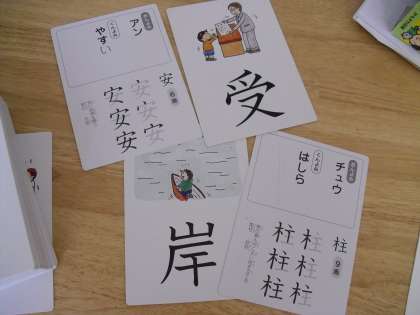 アン
やすい
安
6画
安 安 安
安 安 安
受
岸
チュウ
はしら
柱
9画
柱 柱
柱 柱
柱 柱